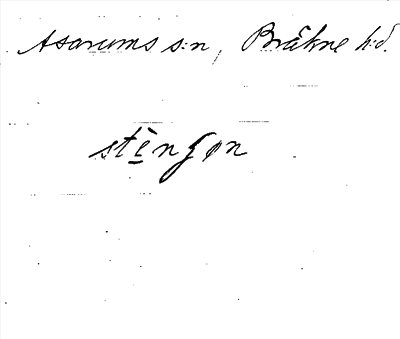 Asarums s:n, Bräkne h:d.
stèngøn